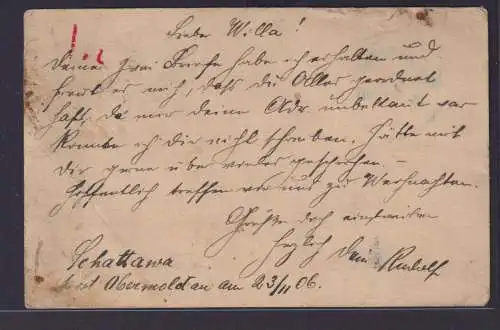 Liebe Willa!
Deine zwei Briefe habe ich erhalten und
freut es mich, dass du Alles geordnet
hast, da mir deine Adr. unbekannt war
konnte ich dir nicht schreiben. Hätte mit
dir gerne über vieles gesprochen. –
Hoffentlich treffen wir uns zu Weihnachten.
Grüße dich einstweilen
herzlich Dein Rudolf
Schattawa
Post Obermoldau am 23/11 06.